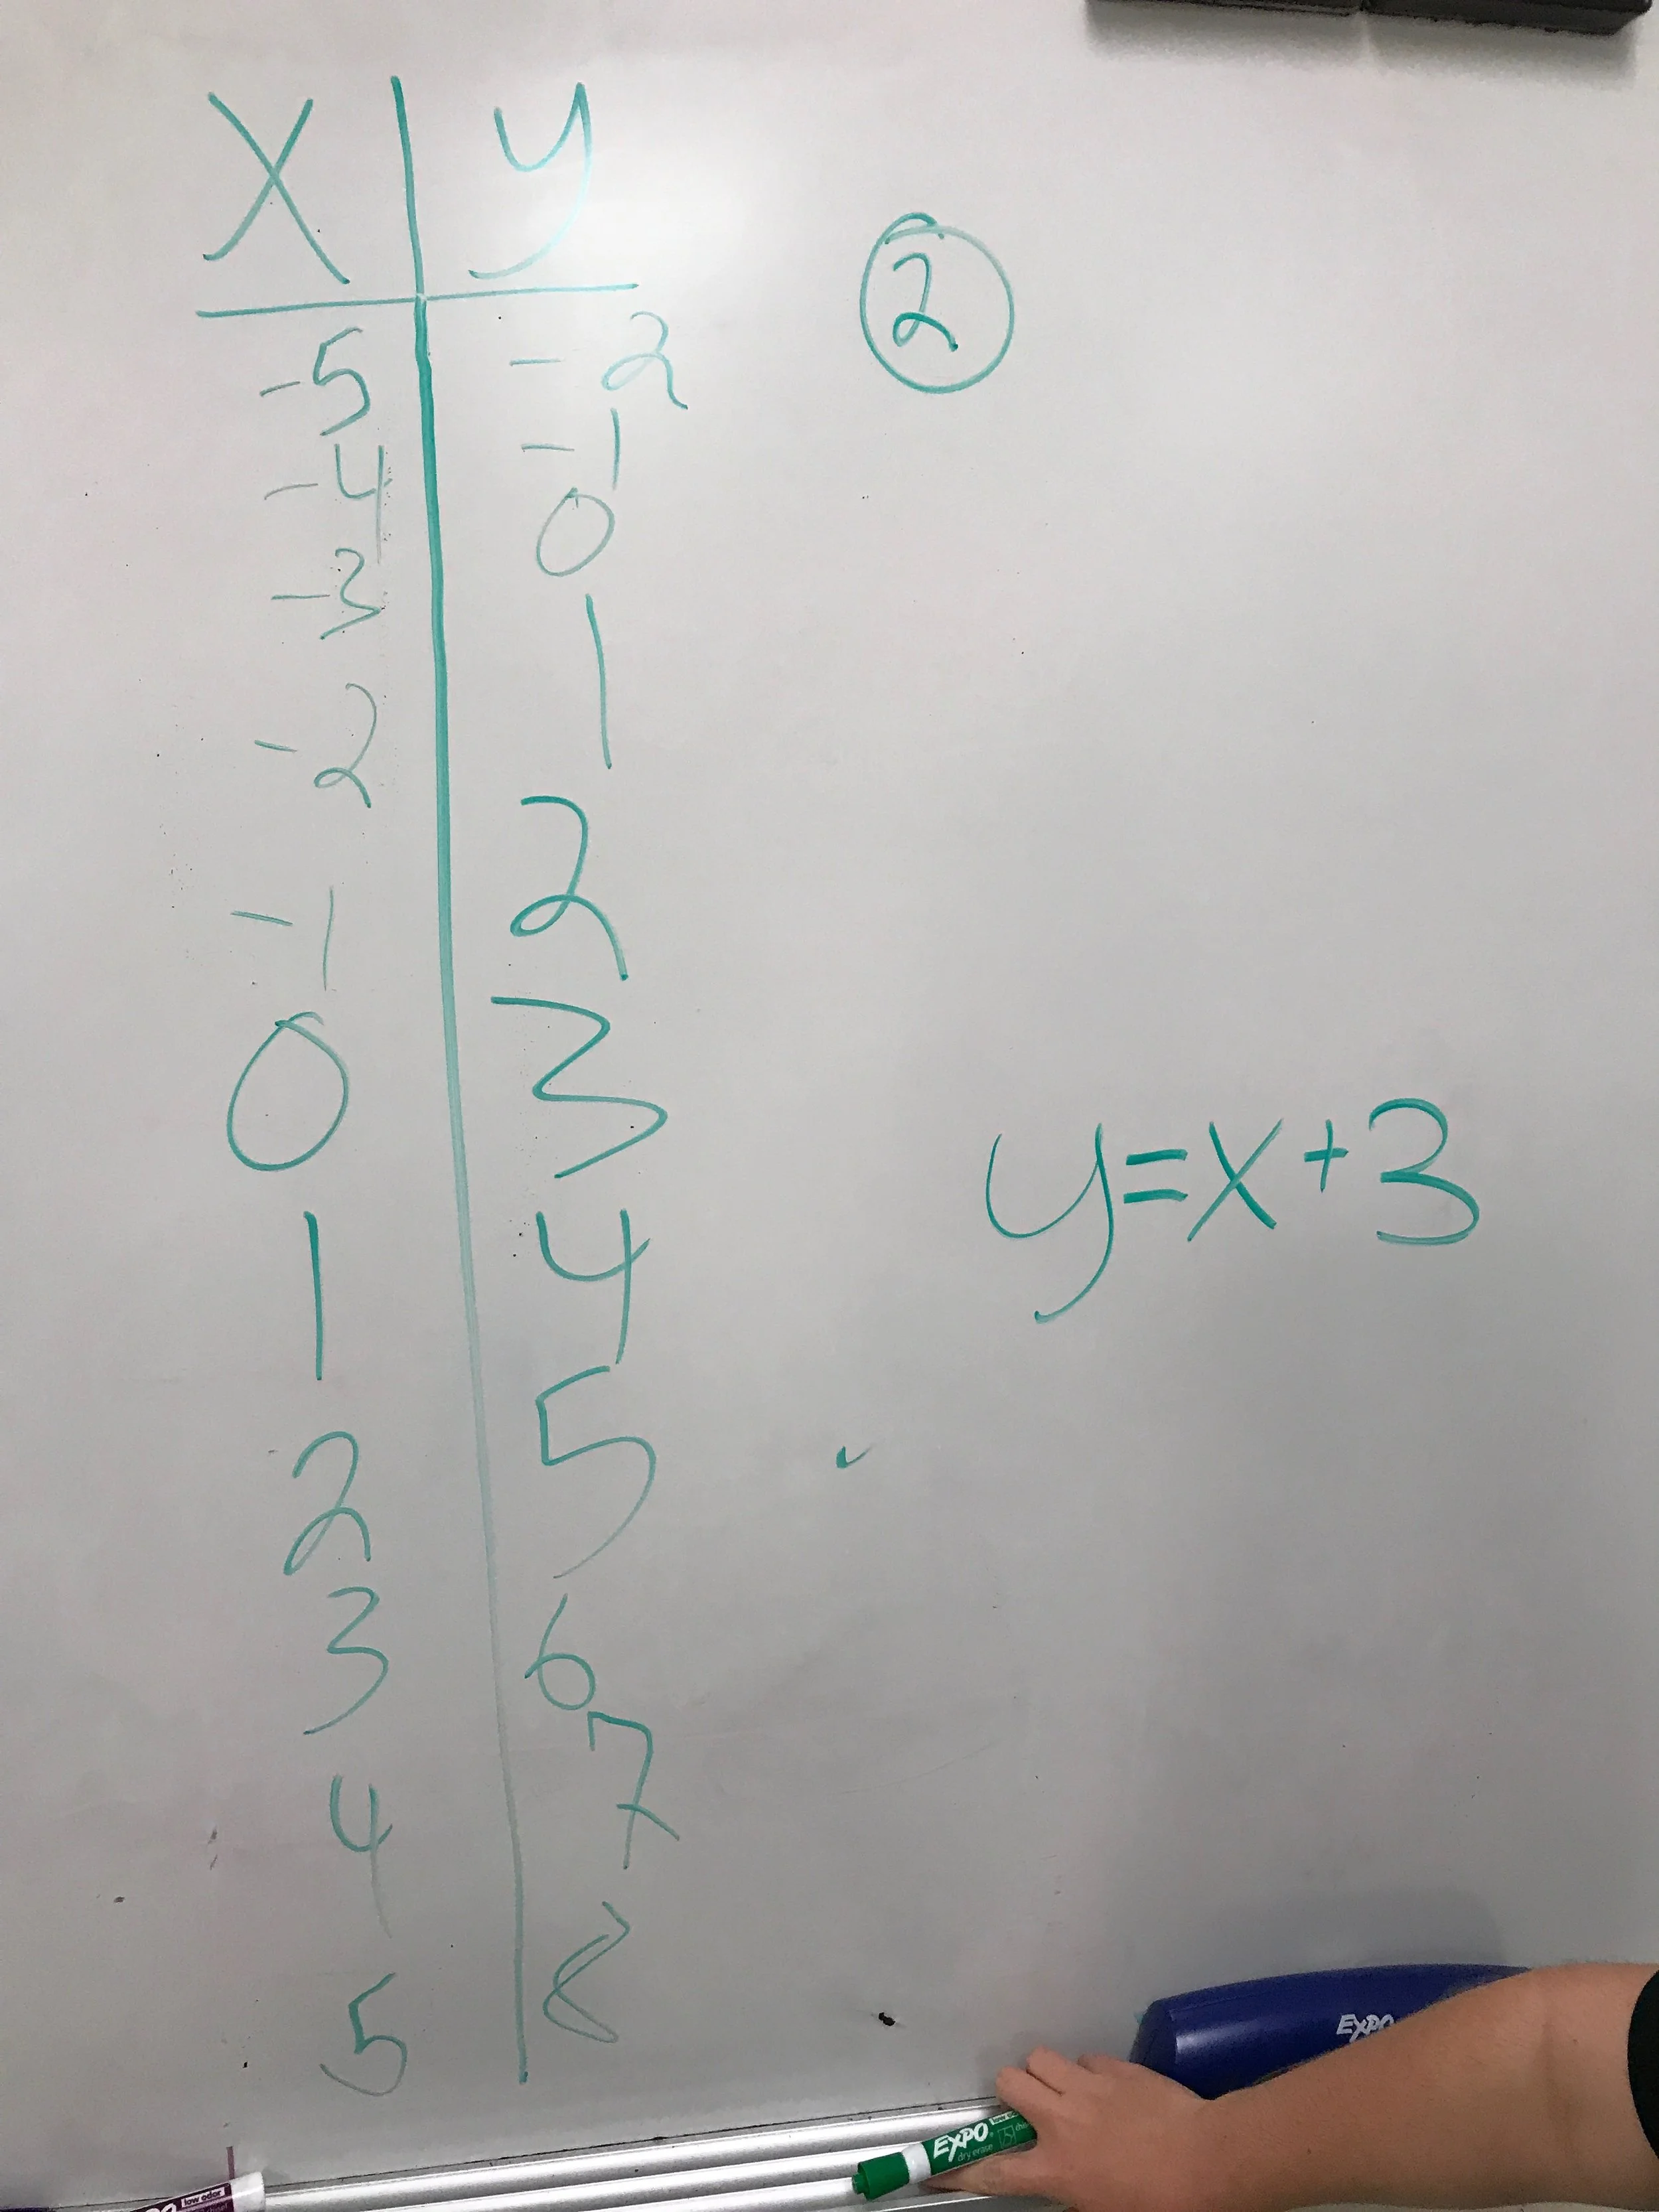 x y
-5 -2
-4 -1
-3 0
-2 1
-1 2
0 3
1 4
2 5
3 6
4 7
5 8
2
y=x+3
EXPO
EXPO low odor
dry erase
low odor